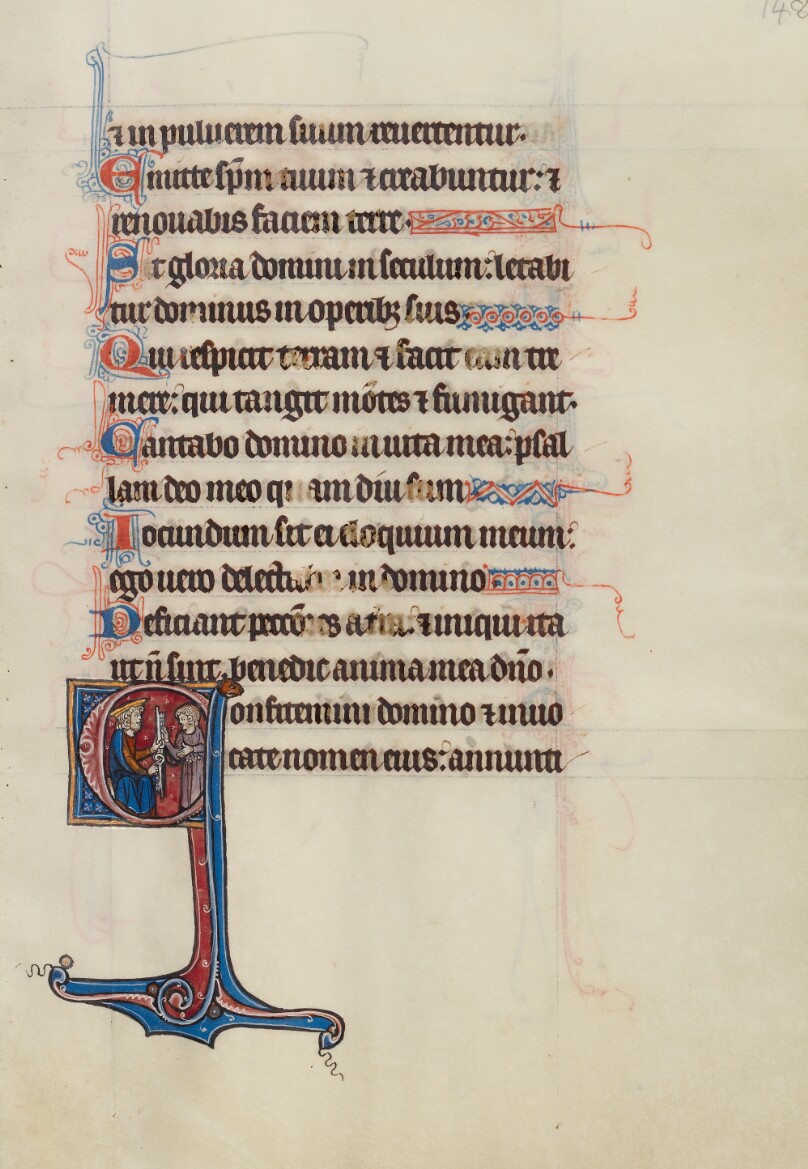 148
⁊ in puluerem suum reuertentur.
Emitte sp̄m tuum ⁊ creabuntur: ⁊
renouabis faciem terre.
Sit gloria domini in seculum: letabi
tur dominus in operibꝫ suis
Qui respicit terram ⁊ facit eam tre
mere: qui tangit mōtes ⁊ fumigant.
Cantabo domino in uita mea: psal
lam deo meo quam diu sum
Iocundum sit ei eloquium meum:
ego uero delectabor in domino
Deficiant peccōres a terra: ⁊ iniqui ita
ut n̄ sint. benedic anima mea dn̄o.
Confitemini domino ⁊ inuo
cate nomen eius: annunti